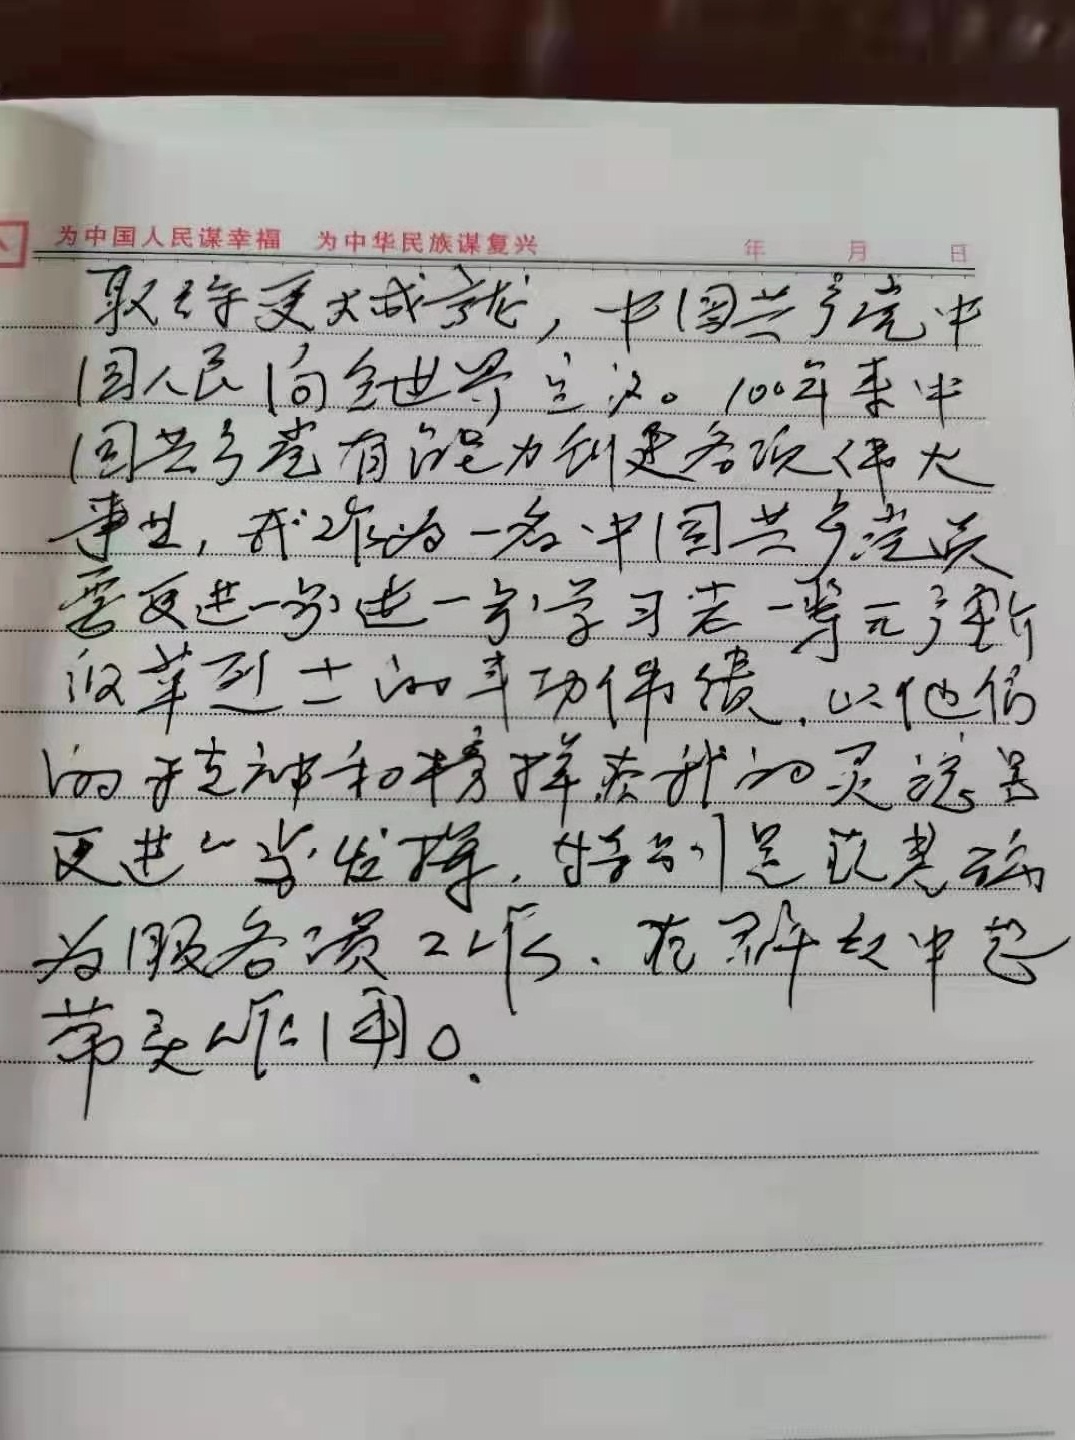 为中国人民谋幸福 为中华民族谋复兴 年 月 日
取得更大成就，中国共产党中
国人民向全世界宣 。100年来中
国共产党有能力创建各项伟大
事业，我作为一名中国共产党员
要更进一步进一步学习老一辈无产阶
级革烈士的丰功伟绩，以他们
的精神和榜样在我的灵魂里
更进一步发挥，特别是
为服务员工作、在 中起
带头作用。